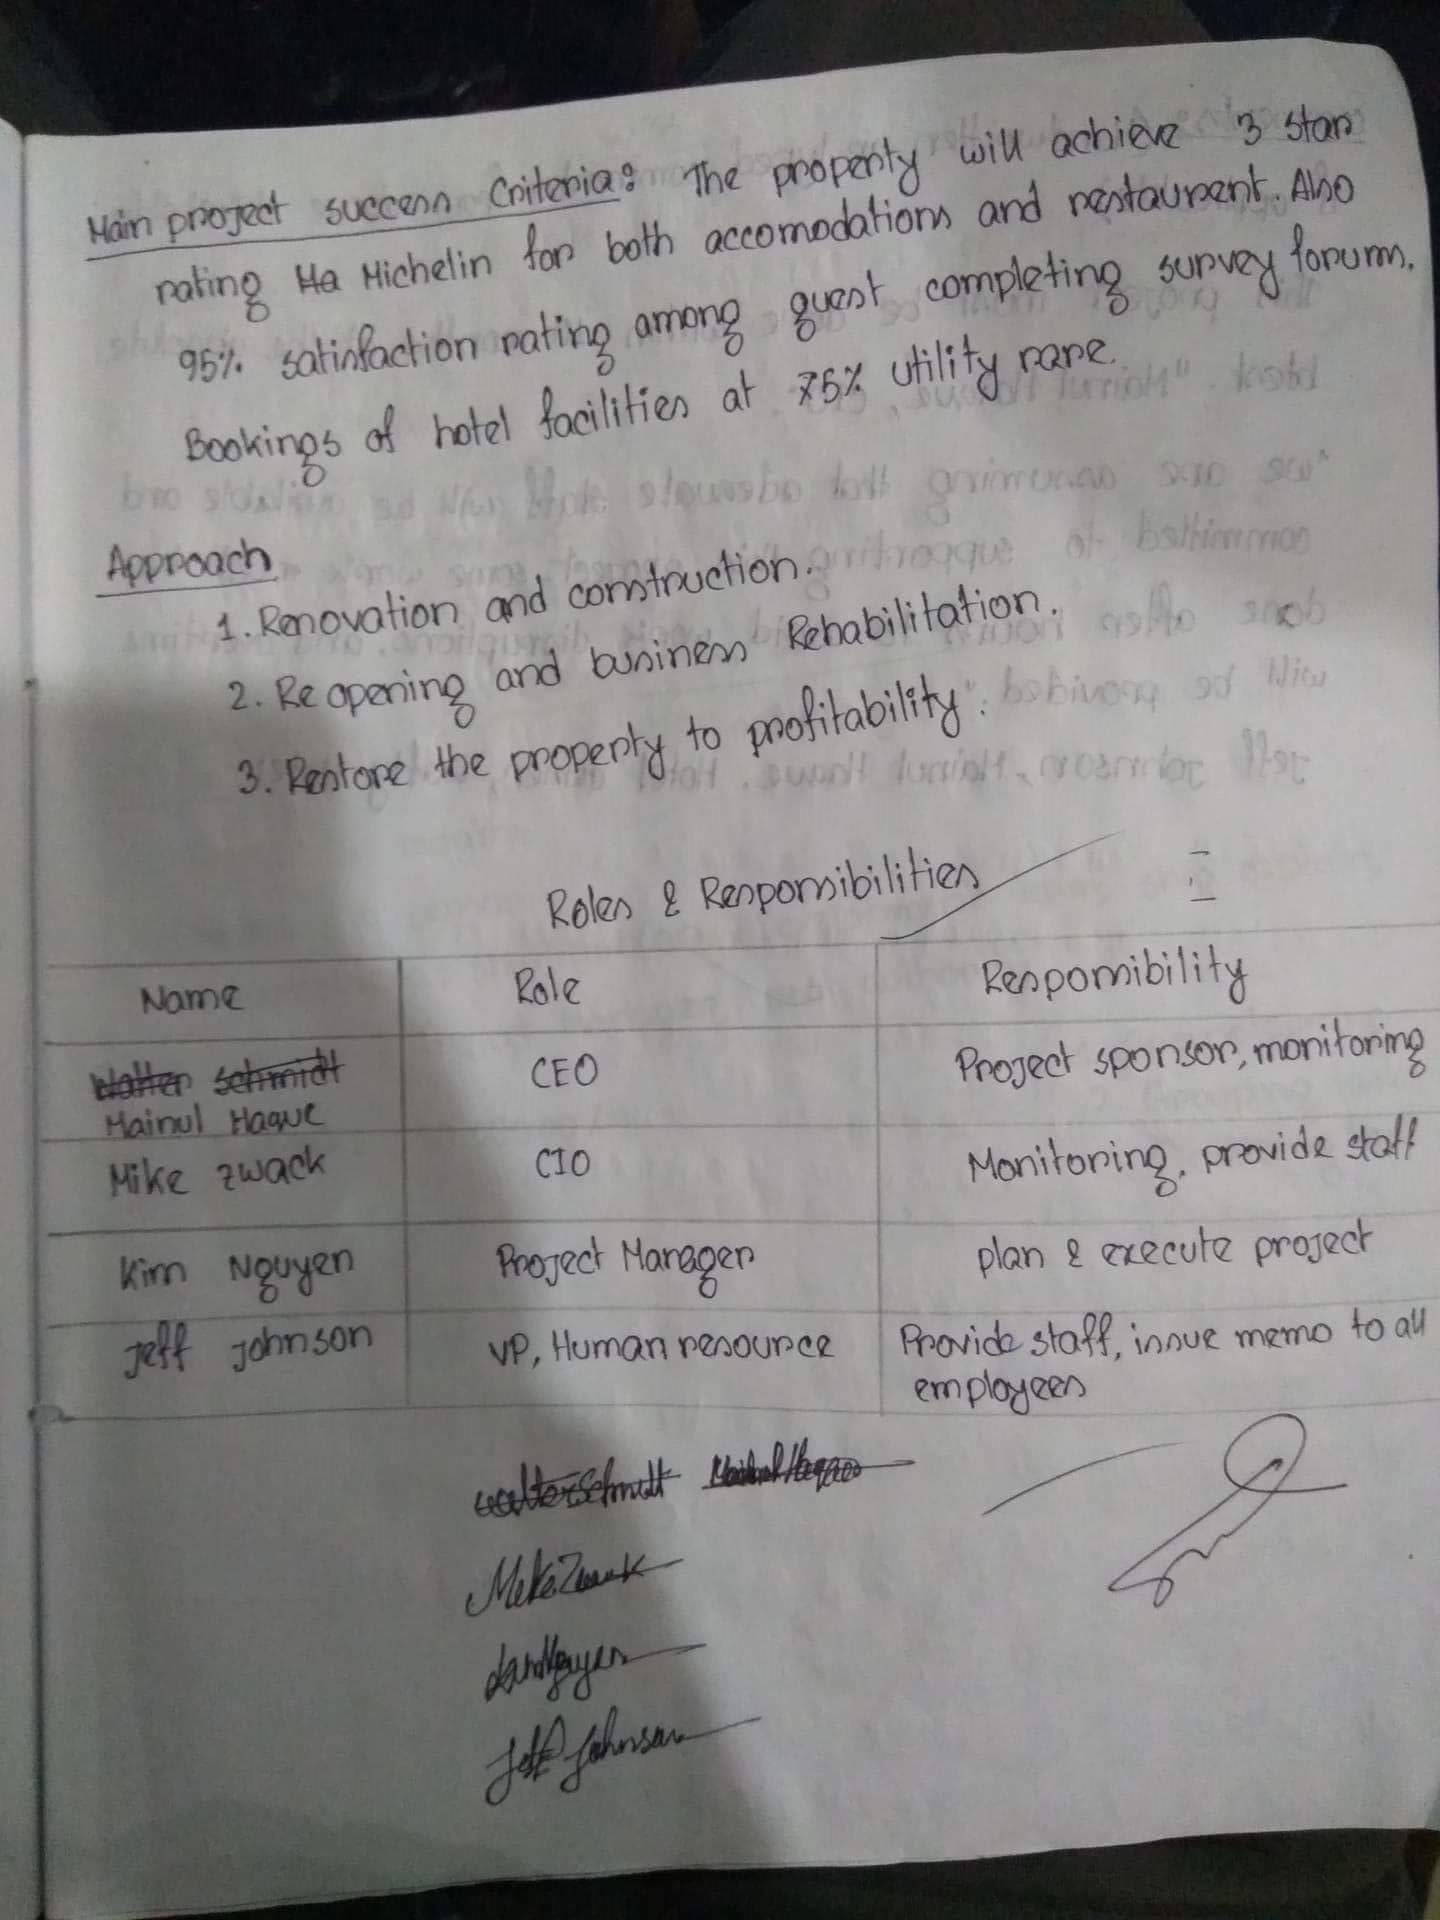 Main project success Criteria: The property will achieve 3 star
rating Ha Michelin for both accomodations and restaurent. Also
95% satisfaction rating among guest completing survey forum.
Bookings of hotel facilities at 75% utility rare.
Approach
1. Renovation and construction.
2. Re opening and business Rehabilitation.
3. Restore the property to profitability.
Roles & Responsibilities
Name Role Responsibility
Walter Schmidt CEO Project sponsor, monitoring
Mainul Haque
Mike Zwack CIO Monitoring, provide staff
Kim Nguyen Project Manager plan & execute project
Jeff Johnson VP, Human resource Provide staff, issue memo to all
employees
Walter Schmidt Mainul Haque
Mike Zwack
Kim Nguyen
Jeff Johnson